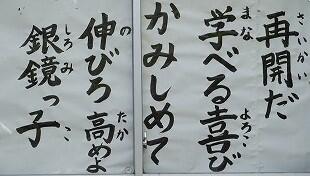 再開だ
さいかい
学べる喜び
まな よろこ
かみしめて
伸びろ 高めよ
の たか
銀鏡っ子
しろみ こ